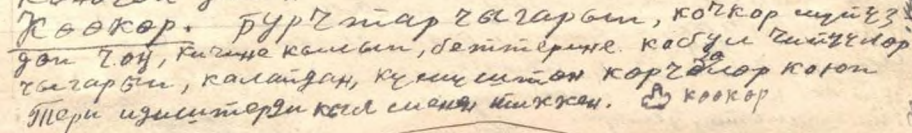 Көөкөр. Бурчтар чыгарып, кочкор мүйүз
дөп чоң, кичине кылып, беттерине кабул чийүүлөр
чыгарып, калайдан, күмүштөн көрчөлөр коюп
Тери идиштерди кыл менен тиккен. көөкөр